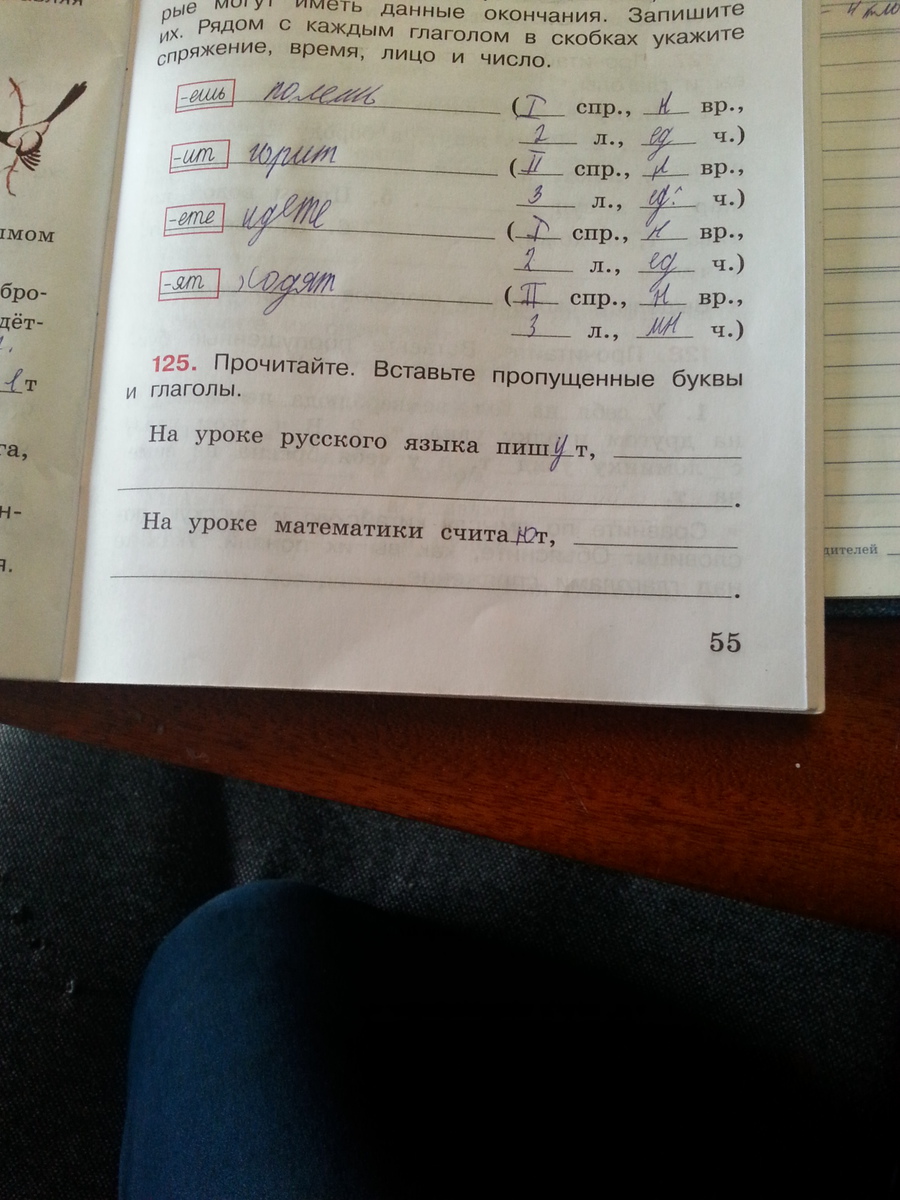 рые могут иметь данные окончания. Запишите
их. Рядом с каждым глаголом в скобках укажите
спряжение, время, лицо и число.
-ешь полешь (I спр., н вр.,
2 л., ед ч.)
-ит горит (II спр., н вр.,
3 л., ед. ч.)
-ете идете (I спр., н вр.,
2 л., ед ч.)
-ят ходят (II спр., н вр.,
3 л., мн ч.)
125. Прочитайте. Вставьте пропущенные буквы
и глаголы.
На уроке русского языка пишут,
.
На уроке математики считают,
.
55
ымом
бро-
дёт-
ет
га,
н-
я.
дителей